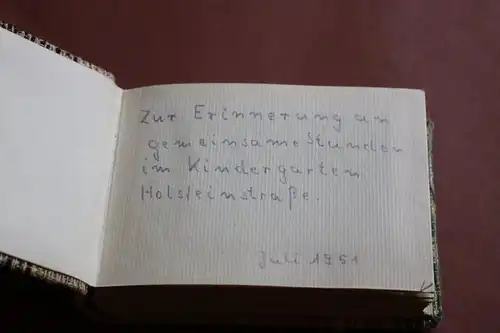 Zur Erinnerung an
gemeinsame Stunden
im Kindergarten
Holsteinstraße.
Juli 1951